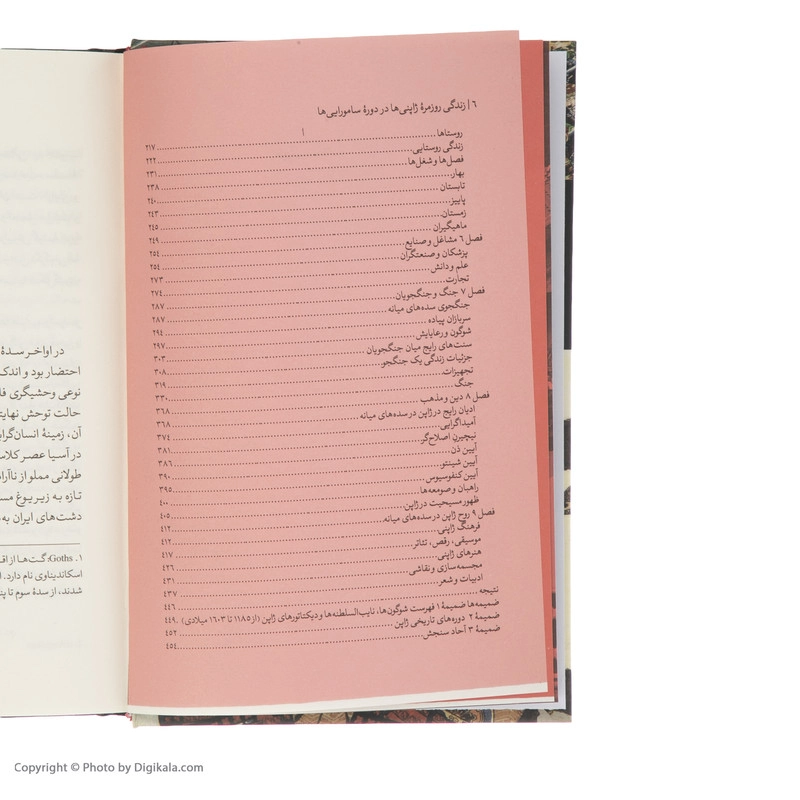 ۶ | زندگی روزمرهٔ ژاپنی‌ها در دورهٔ سامورایی‌ها
روستاها ۲۱۷
زندگی روستایی ۲۲۲
فصل‌ها و شغل‌ها ۲۳۱
بهار ۲۳۸
تابستان ۲۴۰
پاییز ۲۴۳
زمستان ۲۴۵
ماهیگیران ۲۴۹
فصل ۶ مشاغل و صنایع ۲۵۴
پزشکان و صنعتگران ۲۵۴
علم و دانش ۲۷۳
تجارت ۲۷۴
فصل ۷ جنگ و جنگجویان ۲۸۷
جنگجوی سده‌های میانه ۲۸۷
سربازان پیاده ۲۹۴
شوگون و رعایایش ۲۹۷
سنت‌های رایج میان جنگجویان ۳۰۳
جزئیات زندگی یک جنگجو ۳۰۸
تجهیزات ۳۱۹
جنگ ۳۳۰
فصل ۸ دین و مذهب ۳۶۸
ادیان رایج در ژاپن در سده‌های میانه ۳۶۸
آمیداگرایی ۳۷۴
نیچیرن اصلاح‌گر ۳۸۱
آیین ذن ۳۸۶
آیین شینتو ۳۹۰
آیین کنفوسیوس ۳۹۵
راهبان و صومعه‌ها ۴۰۰
ظهور مسیحیت در ژاپن ۴۰۵
فصل ۹ روح ژاپن در سده‌های میانه ۴۱۲
فرهنگ ژاپنی ۴۱۲
موسیقی، رقص، تئاتر ۴۱۷
هنرهای ژاپنی ۴۲۶
مجسمه‌سازی و نقاشی ۴۳۱
ادبیات و شعر ۴۳۷
نتیجه ۴۴۶
ضمیمه‌ها ضمیمهٔ ۱ فهرست شوگون‌ها، نایب‌السلطنه‌ها و دیکتاتورهای ژاپن (از ۱۱۸۵ تا ۱۶۰۳ میلادی) ۴۴۹
ضمیمهٔ ۲ دوره‌های تاریخی ژاپن ۴۵۲
ضمیمهٔ ۳ آحاد سنجش ۴۵۴
در اواخر سدهٔ
احتضار بود و اندک
نوعی وحشیگری
حالت توحش نهایت
آن، زمینهٔ
در آسیا عصر
طولانی مملو از
تازه به زیر یوغ
دشت‌های ایران
۱. Goths: گت‌ها از
اسکاندیناوی نام دارد.
شدند، از سدهٔ سوم تا
Copyright © Photo by Digikala.com